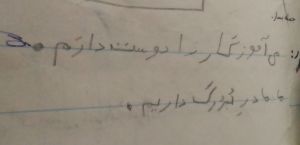 آموزگار را دوست دارم
ما مادر بزرگ داریم.